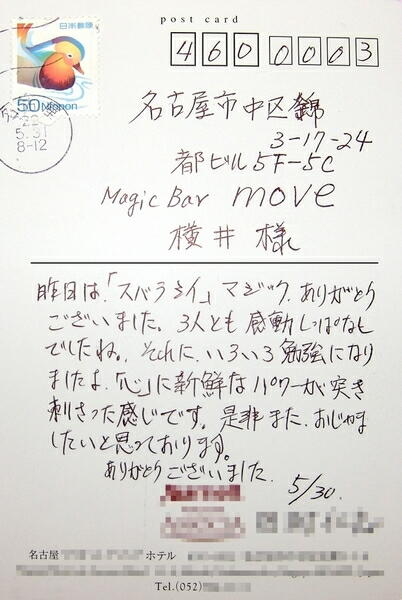 post card
日本郵便
50 NIPPON
22
5.31
8-12
460 0003
名古屋市中区錦
3-17-24
都ビル5F-5C
Magic Bar move
横井 様
昨日は、「スバラシイ」マジック、ありがとう
ございました。3人とも感動しっぱなし
でしたね。それに、いろいろ勉強になり
ましたよ、「心」に新鮮なパワーが突き
刺さった感じです。是非また、おじゃま
したいと思っております。
ありがとうございました。
5/30.
名古屋
ホテル
Tel.(052)